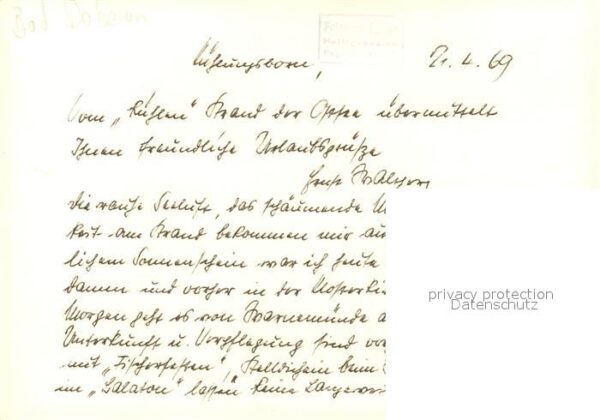 Bad Doberan
Kühlungsborn,
21. 4. 69
Vom „Kühlen" Strand der Ostsee übermittelt
Ihnen freundliche Urlaubsgrüße
Ernst
Die rauhe Seeluft, das schäumende
keit am Strand bekommen mir
lichem Sonnenschein war ich heute
Damm und vorher in der
Morgen geht es von Warnemünde
Unterkunft u. Verpflegung sind
mit „Fischerfesten", Stelldichein beim
im „Balaton" lassen keine
privacy protection
Datenschutz